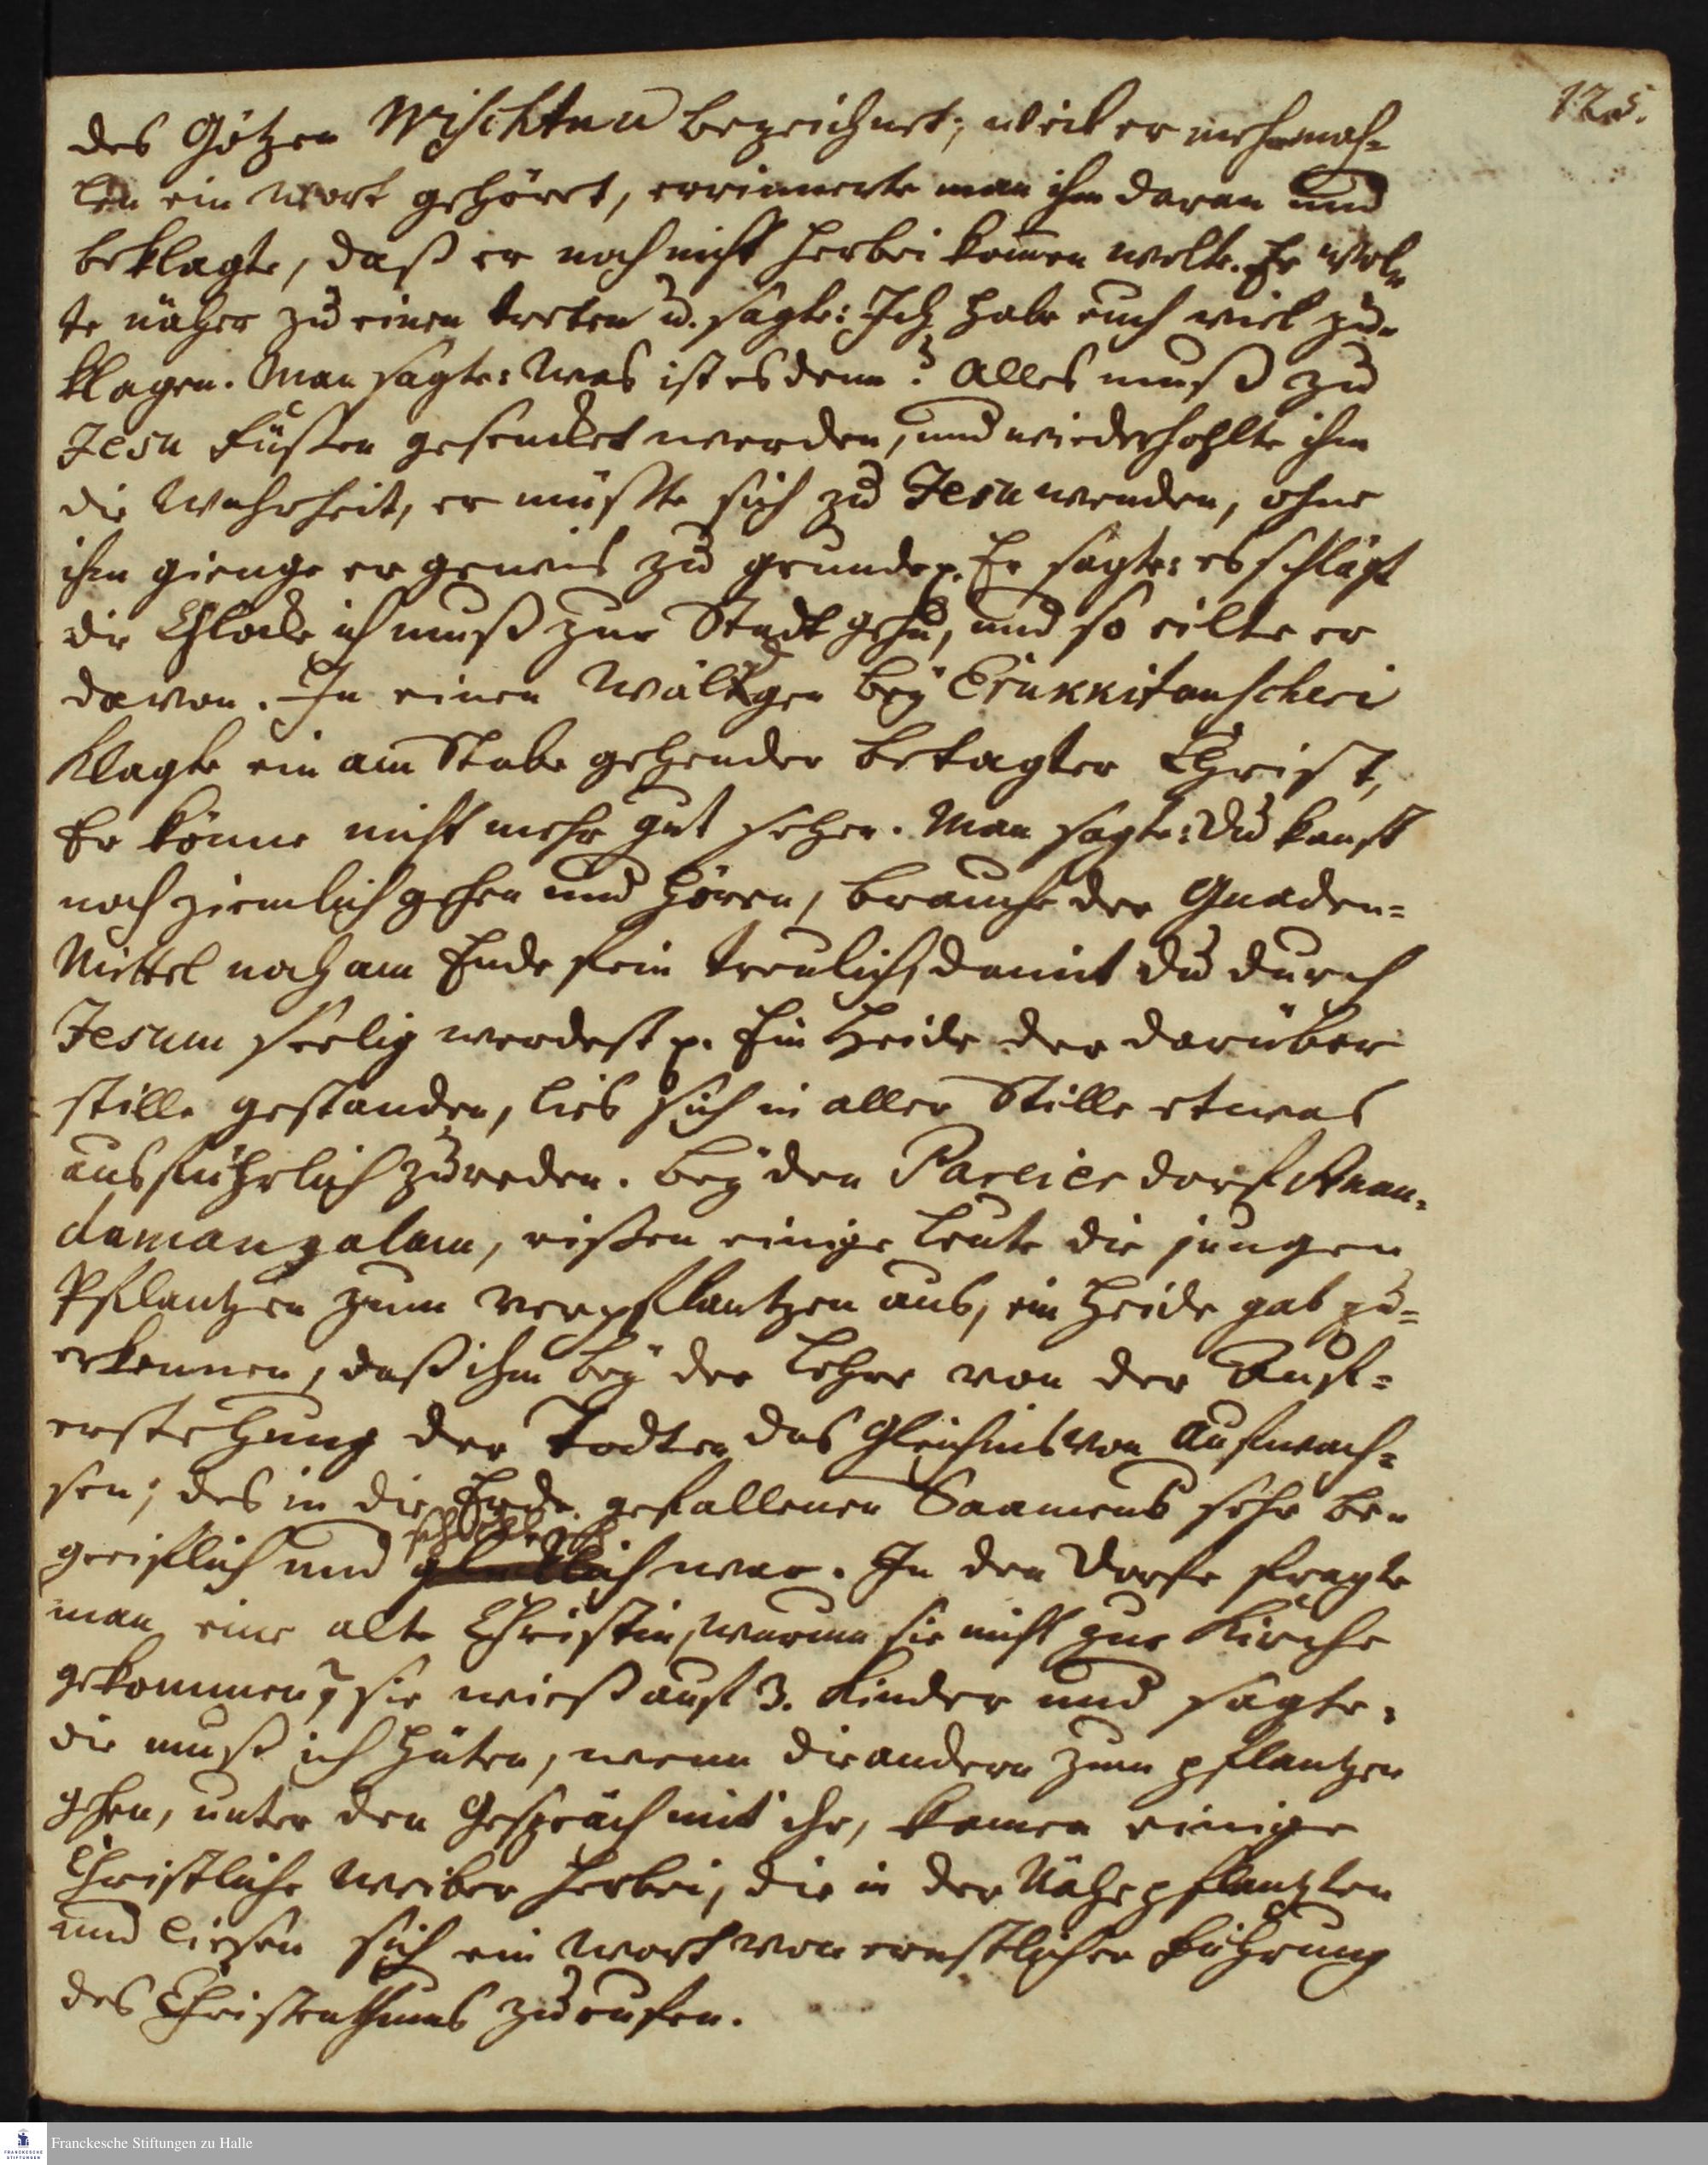 125.
des Götzen Wischtnu bezeichnet; weil er mehrmah-
len ein Wort gehöret, errinnerte man ihn daran und
beklagte, daß er noch nicht herbei kom̄en wolte. Er wol-
te näher zu einen treten u. sagte: Ich habe euch viel zu-
klagen. Man sagte: Was ist es denn? Alles muß zu
Jesu Füssen gesencket werden, und wiederhohlte ihm
die Wahrheit, er müsste sich zu Jesu wenden, ohne
ihn gienge er gewis zu grunde p. Er sagte: es schlägt
die Glocke ich muß zur Stadt gehn, und so eilte er
davon. In einen Wäldgen bey Erukkitanscheri
klagte ein am Stabe gehender betagter Christ,
Er könne nicht mehr gut sehen. Man sagte: Du kanst
noch ziemlich gehen und hören, brauche der Gnaden-
Mittel noch am Ende fein treulich, damit du durch
Jesum seelig werdest p. Ein Heide der darüber
stille gestanden, lies sich in aller Stille etwas
ausführlich zureden. Bey den Pareier dorf Anan-
damangalam, rissen einige Leute die jungen
Pflantzen zum verpflantzen aus, ein Heide gab zu-
erkennen, daß ihm bey der Lehre von der Auf-
erstehung der Todten das Gleichnis von Aufwach-
sen; des in die Erde gefallenen Saamens sehr be-
greiflich und war. In den Dorfe fragte
man eine alte Christin, warum sie nicht zur Kirche
gekommen? sie wieß auf 3. Kinder und sagte:
die muß ich hüten, wenn die andern zum pflantzen
gehen, unter den Gespräch mit ihr, kamen einige
Christliche Weiber herbei, die in der Nähe pflantzten
und liesen sich ein Wort von ernstlicher Führung
des Christenthums zurufen.
Franckesche Stiftungen zu Halle
FRANCKESCHE
STIFTUNGEN